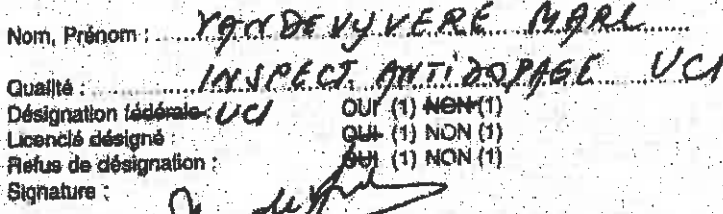 Nom, Prénom : VANDEVYVERE MARC
Qualité : INSPECT. ANTIDOPAGE UCI
Désignation fédérale : UCI OUI (1) NON (1)
Licencié désigné : OUI (1) NON (1)
Refus de désignation : OUI (1) NON (1)
Signature :